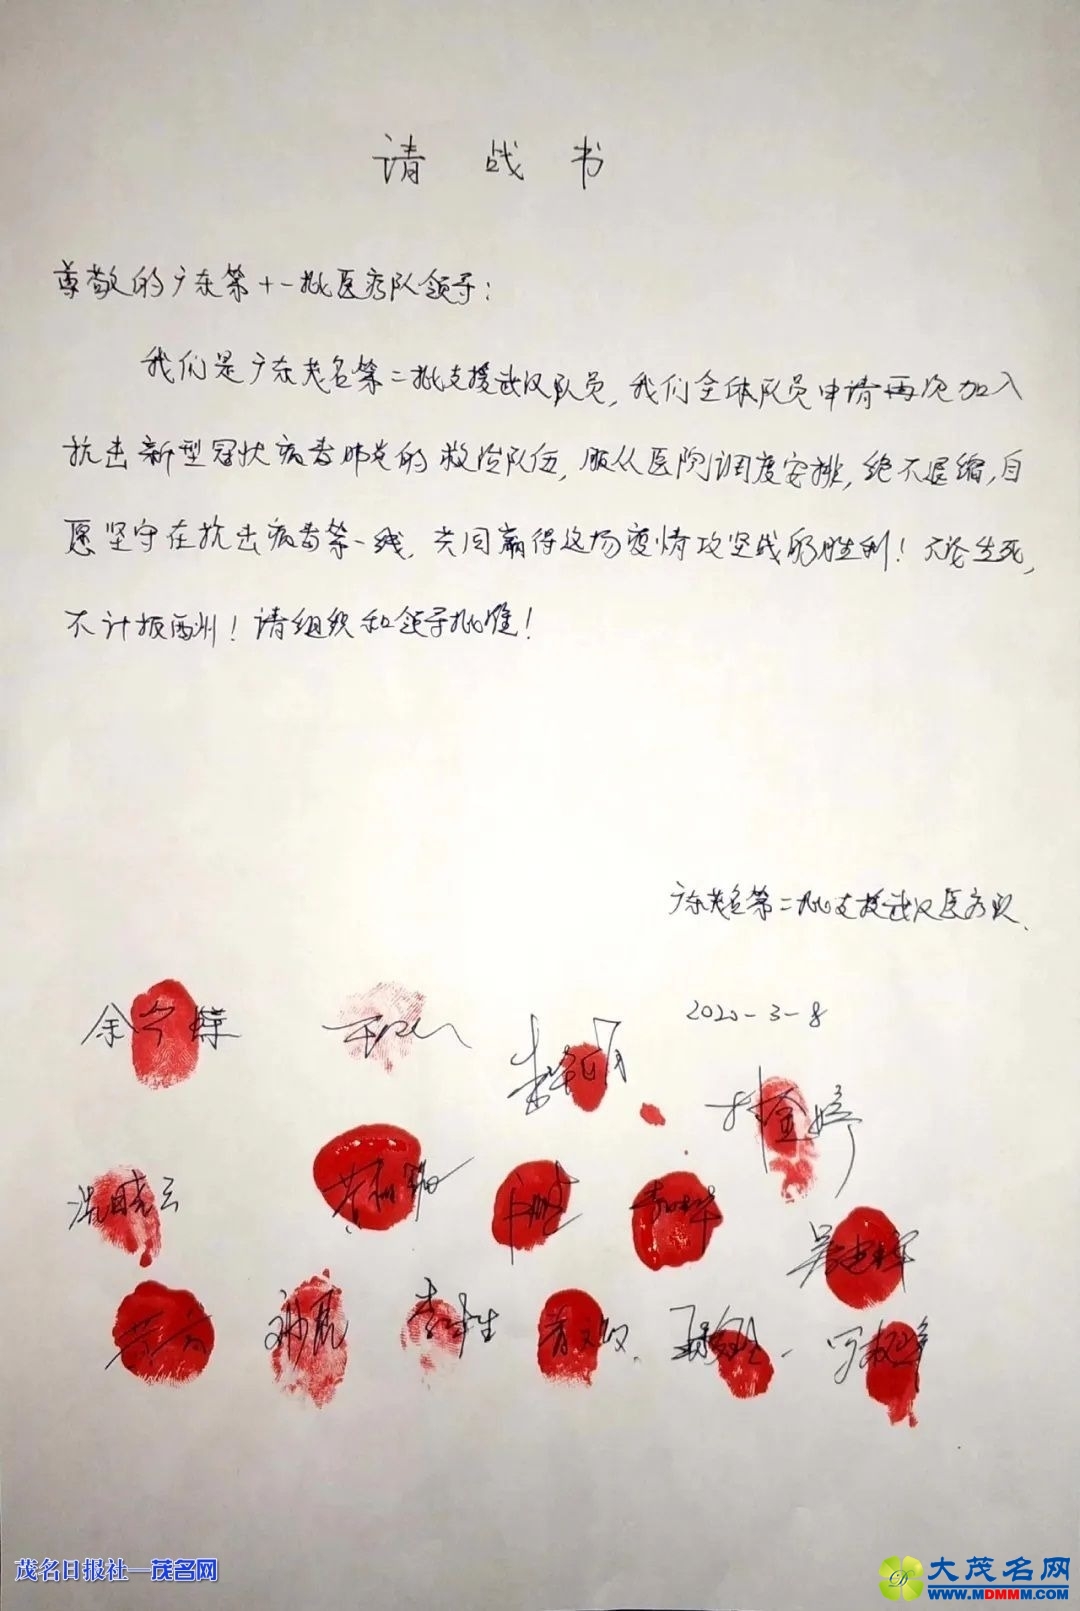 请战书
尊敬的广东第十一批医疗队领导：
我们是广东茂名第二批支援武汉队员，我们全体队员申请再次加入
抗击新型冠状病毒肺炎的救治队伍，服从医院调度安排，绝不退缩，自
愿坚守在抗击病毒第一线，共同赢得这场疫情攻坚战的胜利！无论生死，
不计报酬！请组织和领导批准！
广东茂名第二批支援武汉医疗队
2020-3-8
茂名日报社—茂名网
大茂名网
WWW.MDMMM.COM